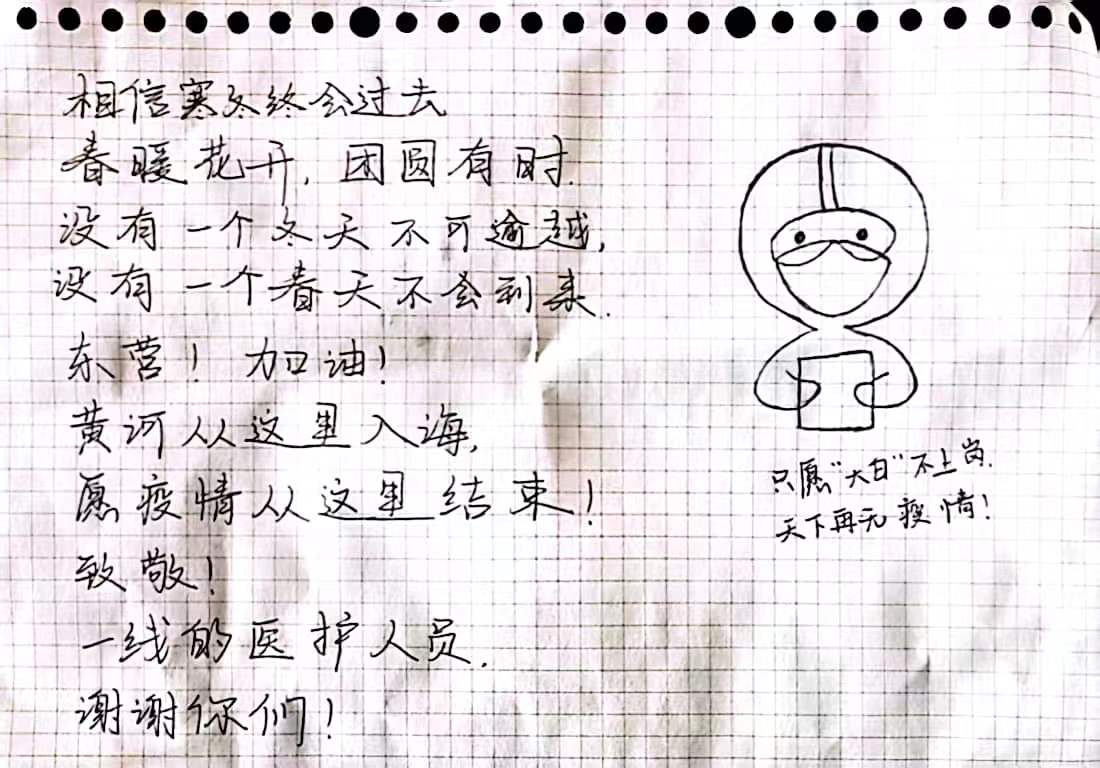 相信寒冬终会过去
春暖花开,团圆有时.
没有一个冬天不可逾越,
没有一个春天不会到来.
东营!加油!
黄河从这里入海,
愿疫情从这里结束!
致敬!
一线的医护人员.
谢谢你们!
只愿“大白”不上岗.
天下再无疫情!